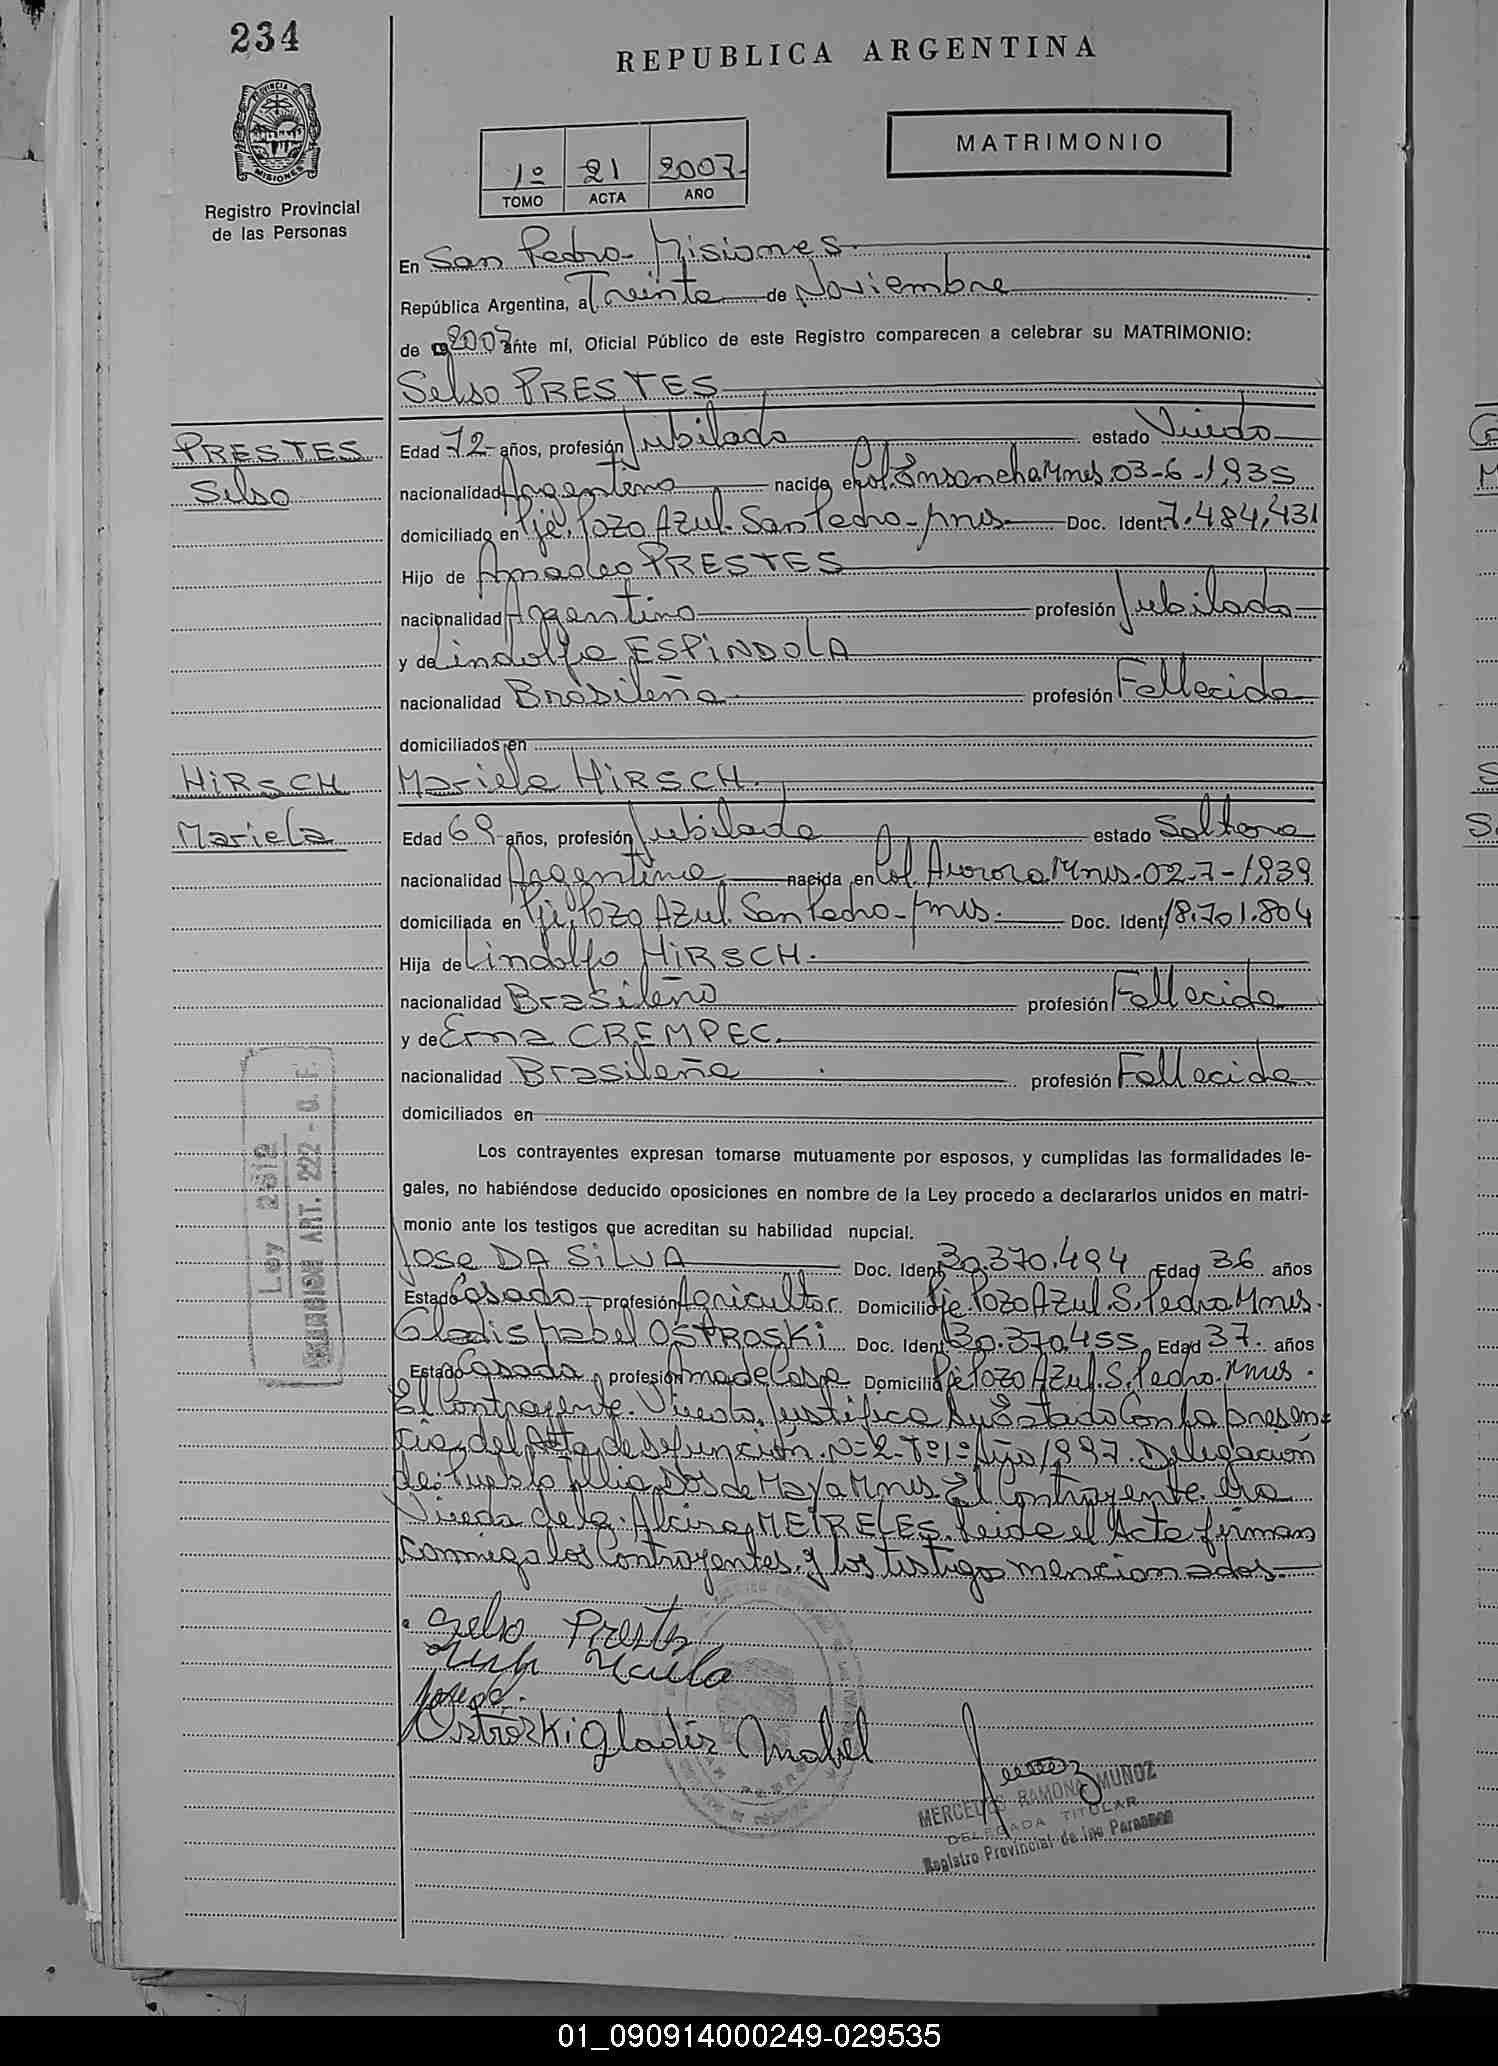 234
REPUBLICA ARGENTINA
PROVINCIA DE
MISIONES
Registro Provincial
de las Personas
1º 21 2007
TOMO ACTA AÑO
MATRIMONIO
En San Pedro- Misiones
República Argentina, a Treinta de Noviembre
de 2007 ante mí, Oficial Público de este Registro comparecen a celebrar su MATRIMONIO:
Selso PRESTES
PRESTES
Selso
Edad 72 años, profesión Jubilado estado Viudo
nacionalidad Argentino nacido en Col. Ensancha Mnes. 03-6-1935
domiciliado en Pje. Pozo Azul. San Pedro-Mnes. Doc. Ident. 7.484.431
Hijo de Amadeo PRESTES
nacionalidad Argentino profesión Jubilado
y de Lindolfa ESPINDOLA
nacionalidad Brasileña profesión Fallecida
domiciliados en
HIRSCH
Mariela
Mariela HIRSCH.
Edad 69 años, profesión Jubilada estado Soltera
nacionalidad Argentina nacida en Col. Aurora Mnes. 02-7-1939
domiciliada en Pje. Pozo Azul. San Pedro-Mnes. Doc. Ident. 18.701.804
Hija de Lindolfo HIRSCH.
nacionalidad Brasileño profesión Fallecido
y de Erna CREMPEC.
nacionalidad Brasileña profesión Fallecida
domiciliados en
Los contrayentes expresan tomarse mutuamente por esposos, y cumplidas las formalidades le-
gales, no habiéndose deducido oposiciones en nombre de la Ley procedo a declararlos unidos en matri-
monio ante los testigos que acreditan su habilidad nupcial.
Jose DA SILVA Doc. Ident. 30.370.494 Edad 36 años
Estado Casado profesión Agricultor. Domicilio Pje. Pozo Azul. S. Pedro Mnes.
Gladis Mabel OSTROSKI Doc. Ident. 30.370.455 Edad 37 años
Estado Casada, profesión Ama de Casa Domicilio Pje Pozo Azul. S. Pedro. Mnes.
El Contrayente. Viudo, Justifica su Estado Con la presen-
cia del Acta de Defunción. Nº 2- Tº 1º Año 1997. Delegación
de Pueblo Illia Dos de Mayo Mnes. El Contrayente. era
Viudo de la. Alcira MEIRELES. Leida el Acta firman
conmigo los Contrayentes. y los testigos mencionados.
Ley 2312
ART. 222
Selso Prestes
Ostroski Gladis Mabel
MERCEDES RAMONA MUÑOZ
DELEGADA TITULAR
Registro Provincial de las Personas
01_090914000249-029535